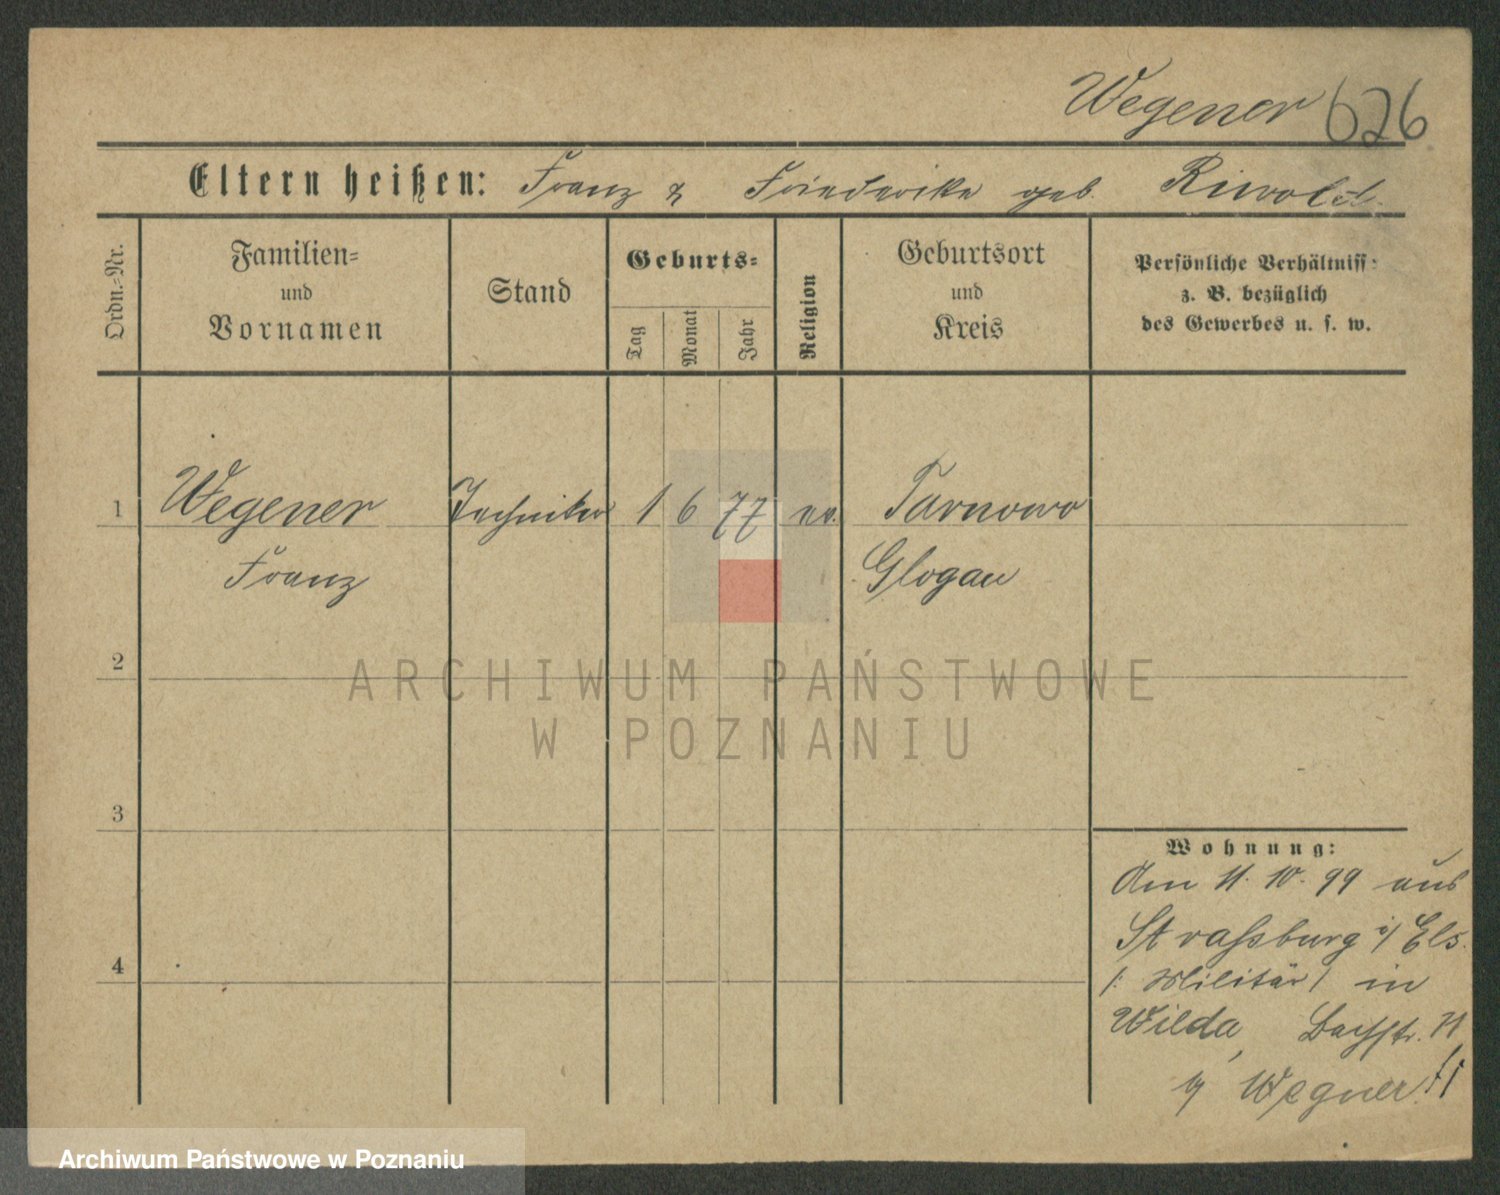 Wegener 626
Eltern heißen: Franz & Friederike geb.
Ordn.-Nr.
Familien-
und
Vornamen
Stand
Geburts-
Tag
Monat
Jahr
Religion
Geburtsort
und
Kreis
Persönliche Verhältniss-
z. B. bezüglich
des Gewerbes u. s. w.
1 Wegener Techniker 1 6 77 ev. Tarnowo
Franz Glogau
2
ARCHIWUM PAŃSTWOWE
W POZNANIU
3
Wohnung:
Am 11. 10. 99 aus
Straßburg i/ Els.
/: Militär / in
4
Wilda, Bachstr. 11
b/ Wegner
Archiwum Państwowe w Poznaniu